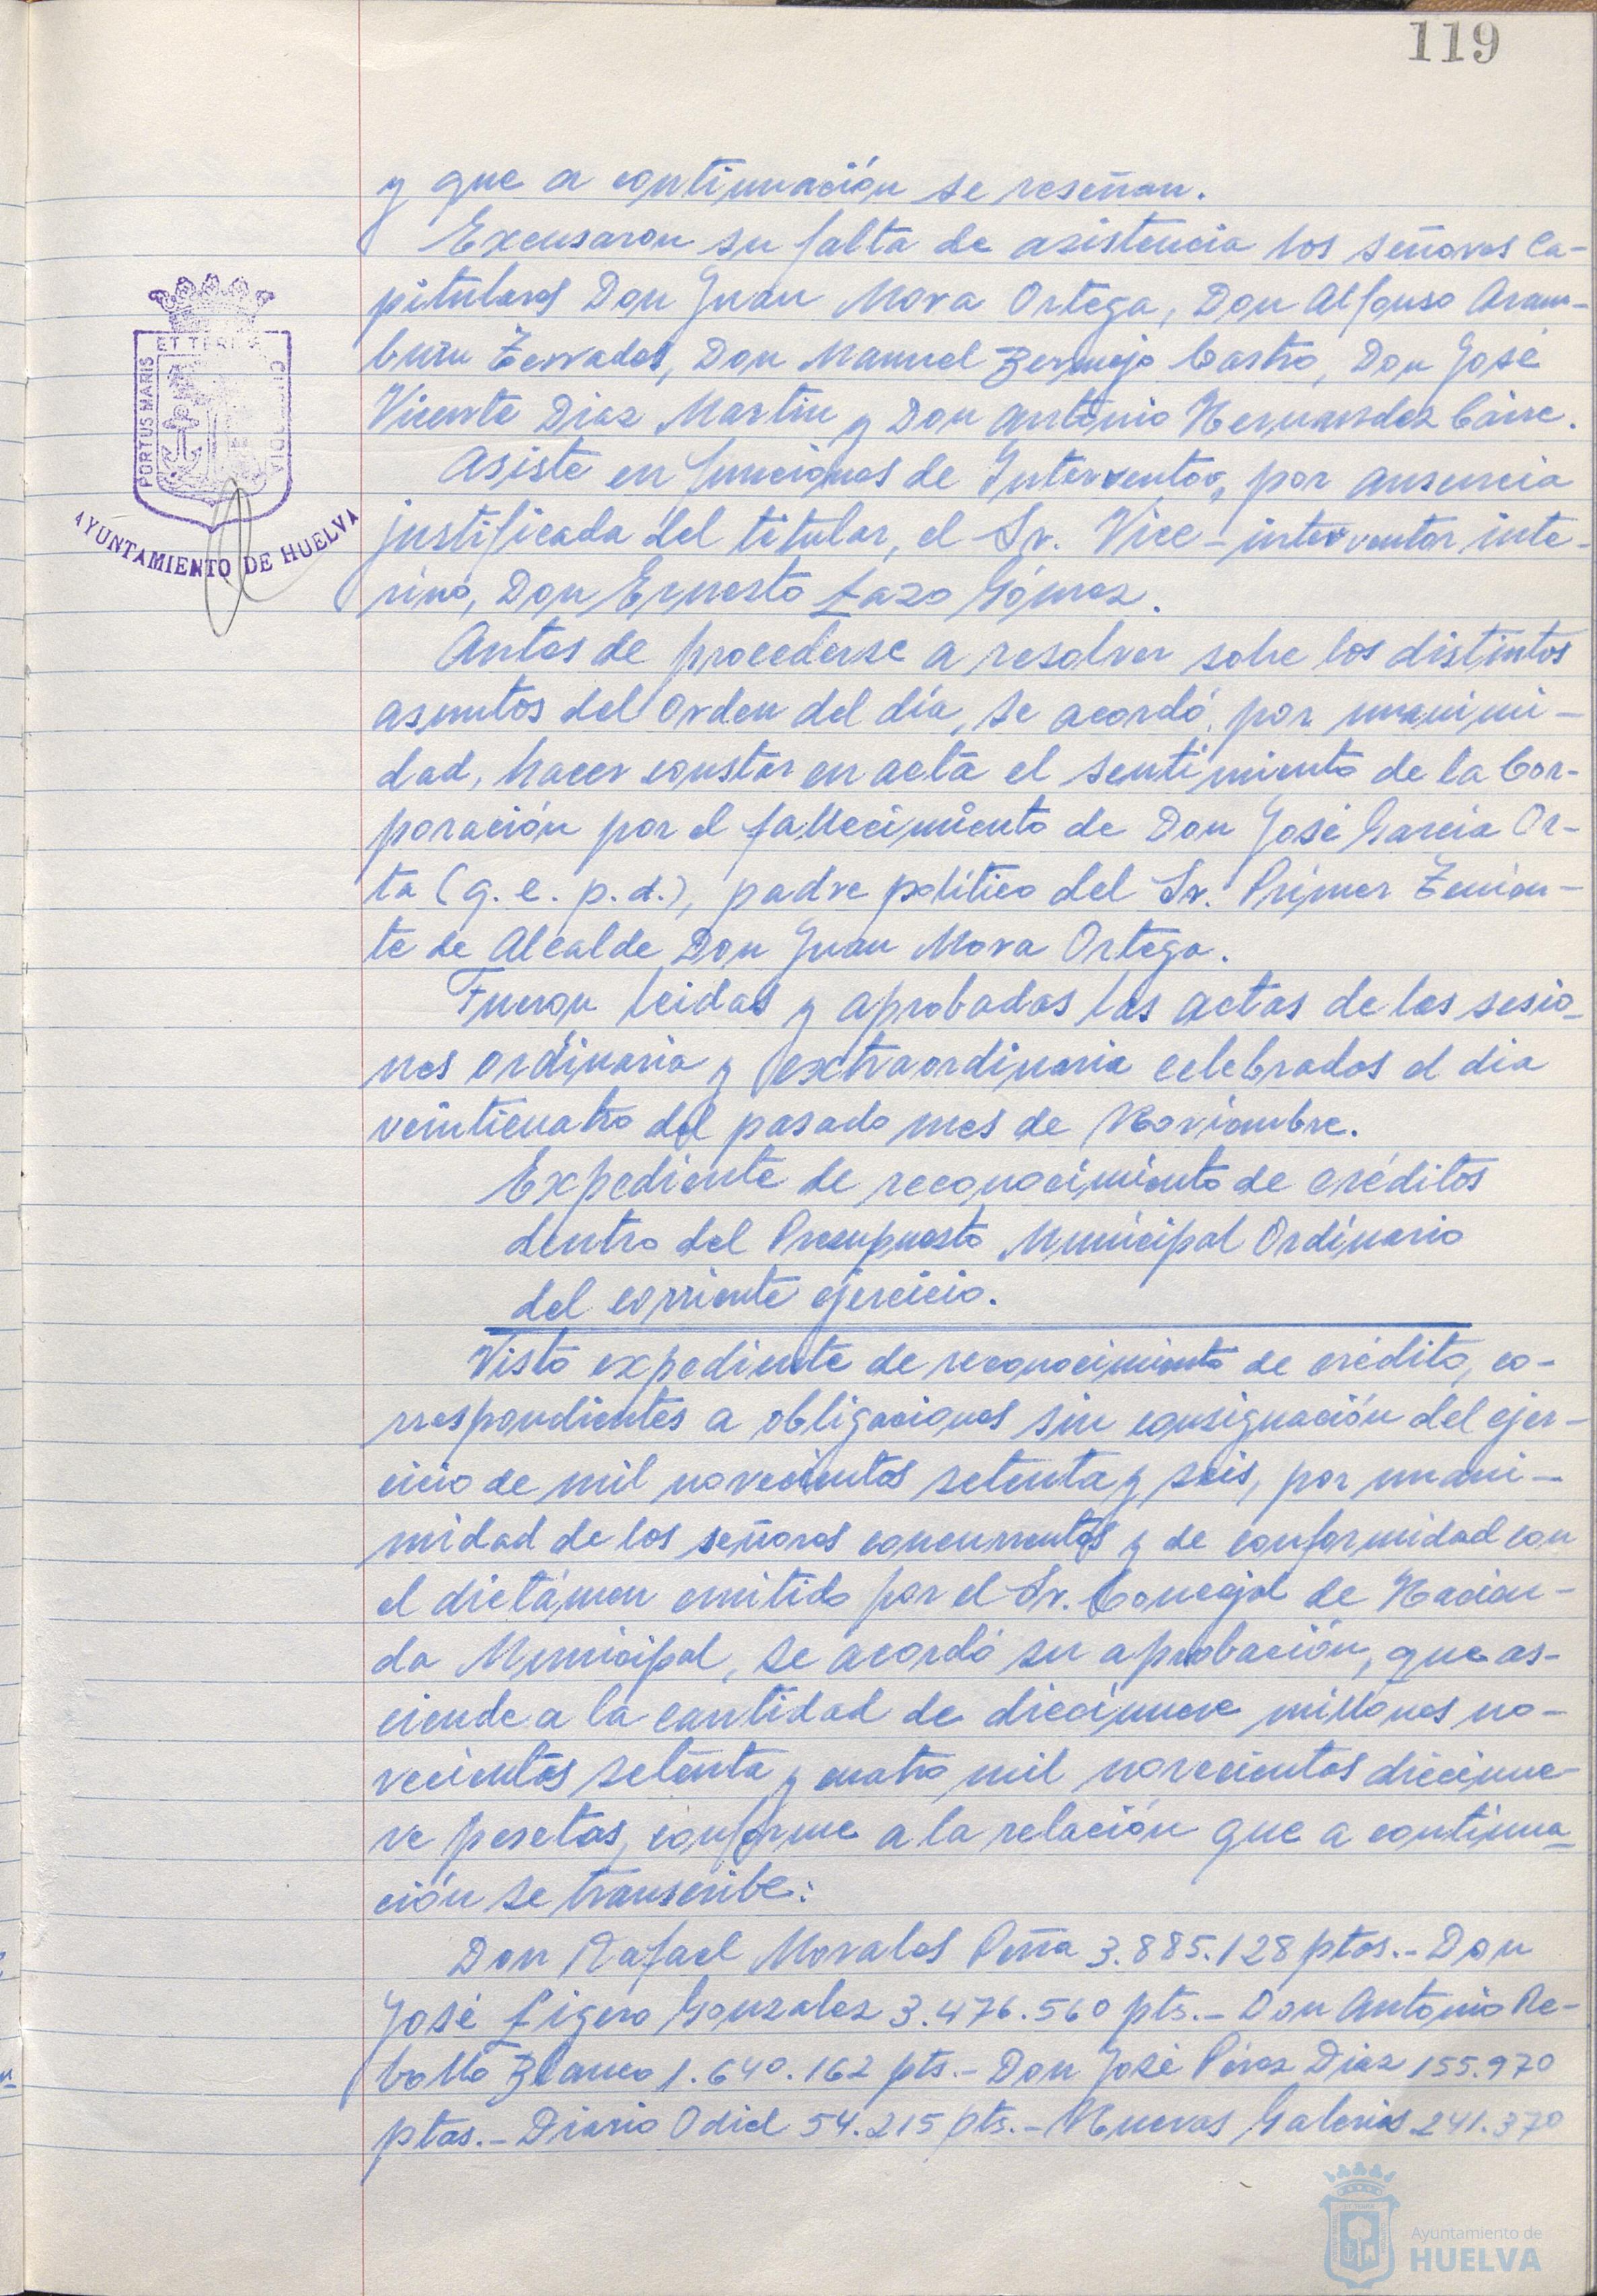 119
y que a continuación se reseñan.
Excusaron su falta de asistencia los señores Ca-
pitulares Don Juan Mora Ortega, Don Alfonso Aram-
buru Terrades, Don Manuel Bermejo Castro, Don José
Vicente Diaz Martin y Don Antonio Hernandez Caire.
Asiste en funciones de Interventor, por ausencia
justificada del titular, el Sr. Vice-interventor inte-
rino, Don Ernesto Lazo Gómez.
Antes de procederse a resolver sobre los distintos
asuntos del Orden del día, se acordó, por unanimi-
dad, hacer constar en acta el sentimiento de la Cor-
poración por el fallecimiento de Don José Garcia Or-
ta (q. e. p. d.), padre político del Sr. Primer Tenien-
te de Alcalde Don Juan Mora Ortega.
Fueron leidas y aprobadas las actas de las sesio-
nes ordinaria y extraordinaria celebradas el dia
veinticuatro del pasado mes de Noviembre.
Expediente de reconocimiento de créditos
dentro del Presupuesto Municipal Ordinario
del corriente ejercicio.
Visto expediente de reconocimiento de crédito, co-
rrespondientes a obligaciones sin consignación del ejer-
cicio de mil novecientos setenta y seis, por unani-
midad de los señores concurrentes y de conformidad con
el dictámen emitido por el Sr. Concejal de Hacien-
da Municipal, se acordó su aprobación, que as-
ciende a la cantidad de diecinueve millones no-
vecientas setenta y cuatro mil novecientas diecinue-
ve pesetas, conforme a la relación que a continua-
ción se transcribe:
Don Rafael Morales Peña 3.885.128 ptas.- Don
José Ligero Gonzalez 3.476.560 pts.- Don Antonio Re-
bollo Blanco 1.640.162 pts.- Don José Pérez Diaz 155.970
ptas.- Diario Odiel 54.215 pts.- Nuevas Galerias 241.370
ET TERRAE
PORTUS MARIS
CUSTODIA
AYUNTAMIENTO DE HUELVA
Ayuntamiento de
HUELVA